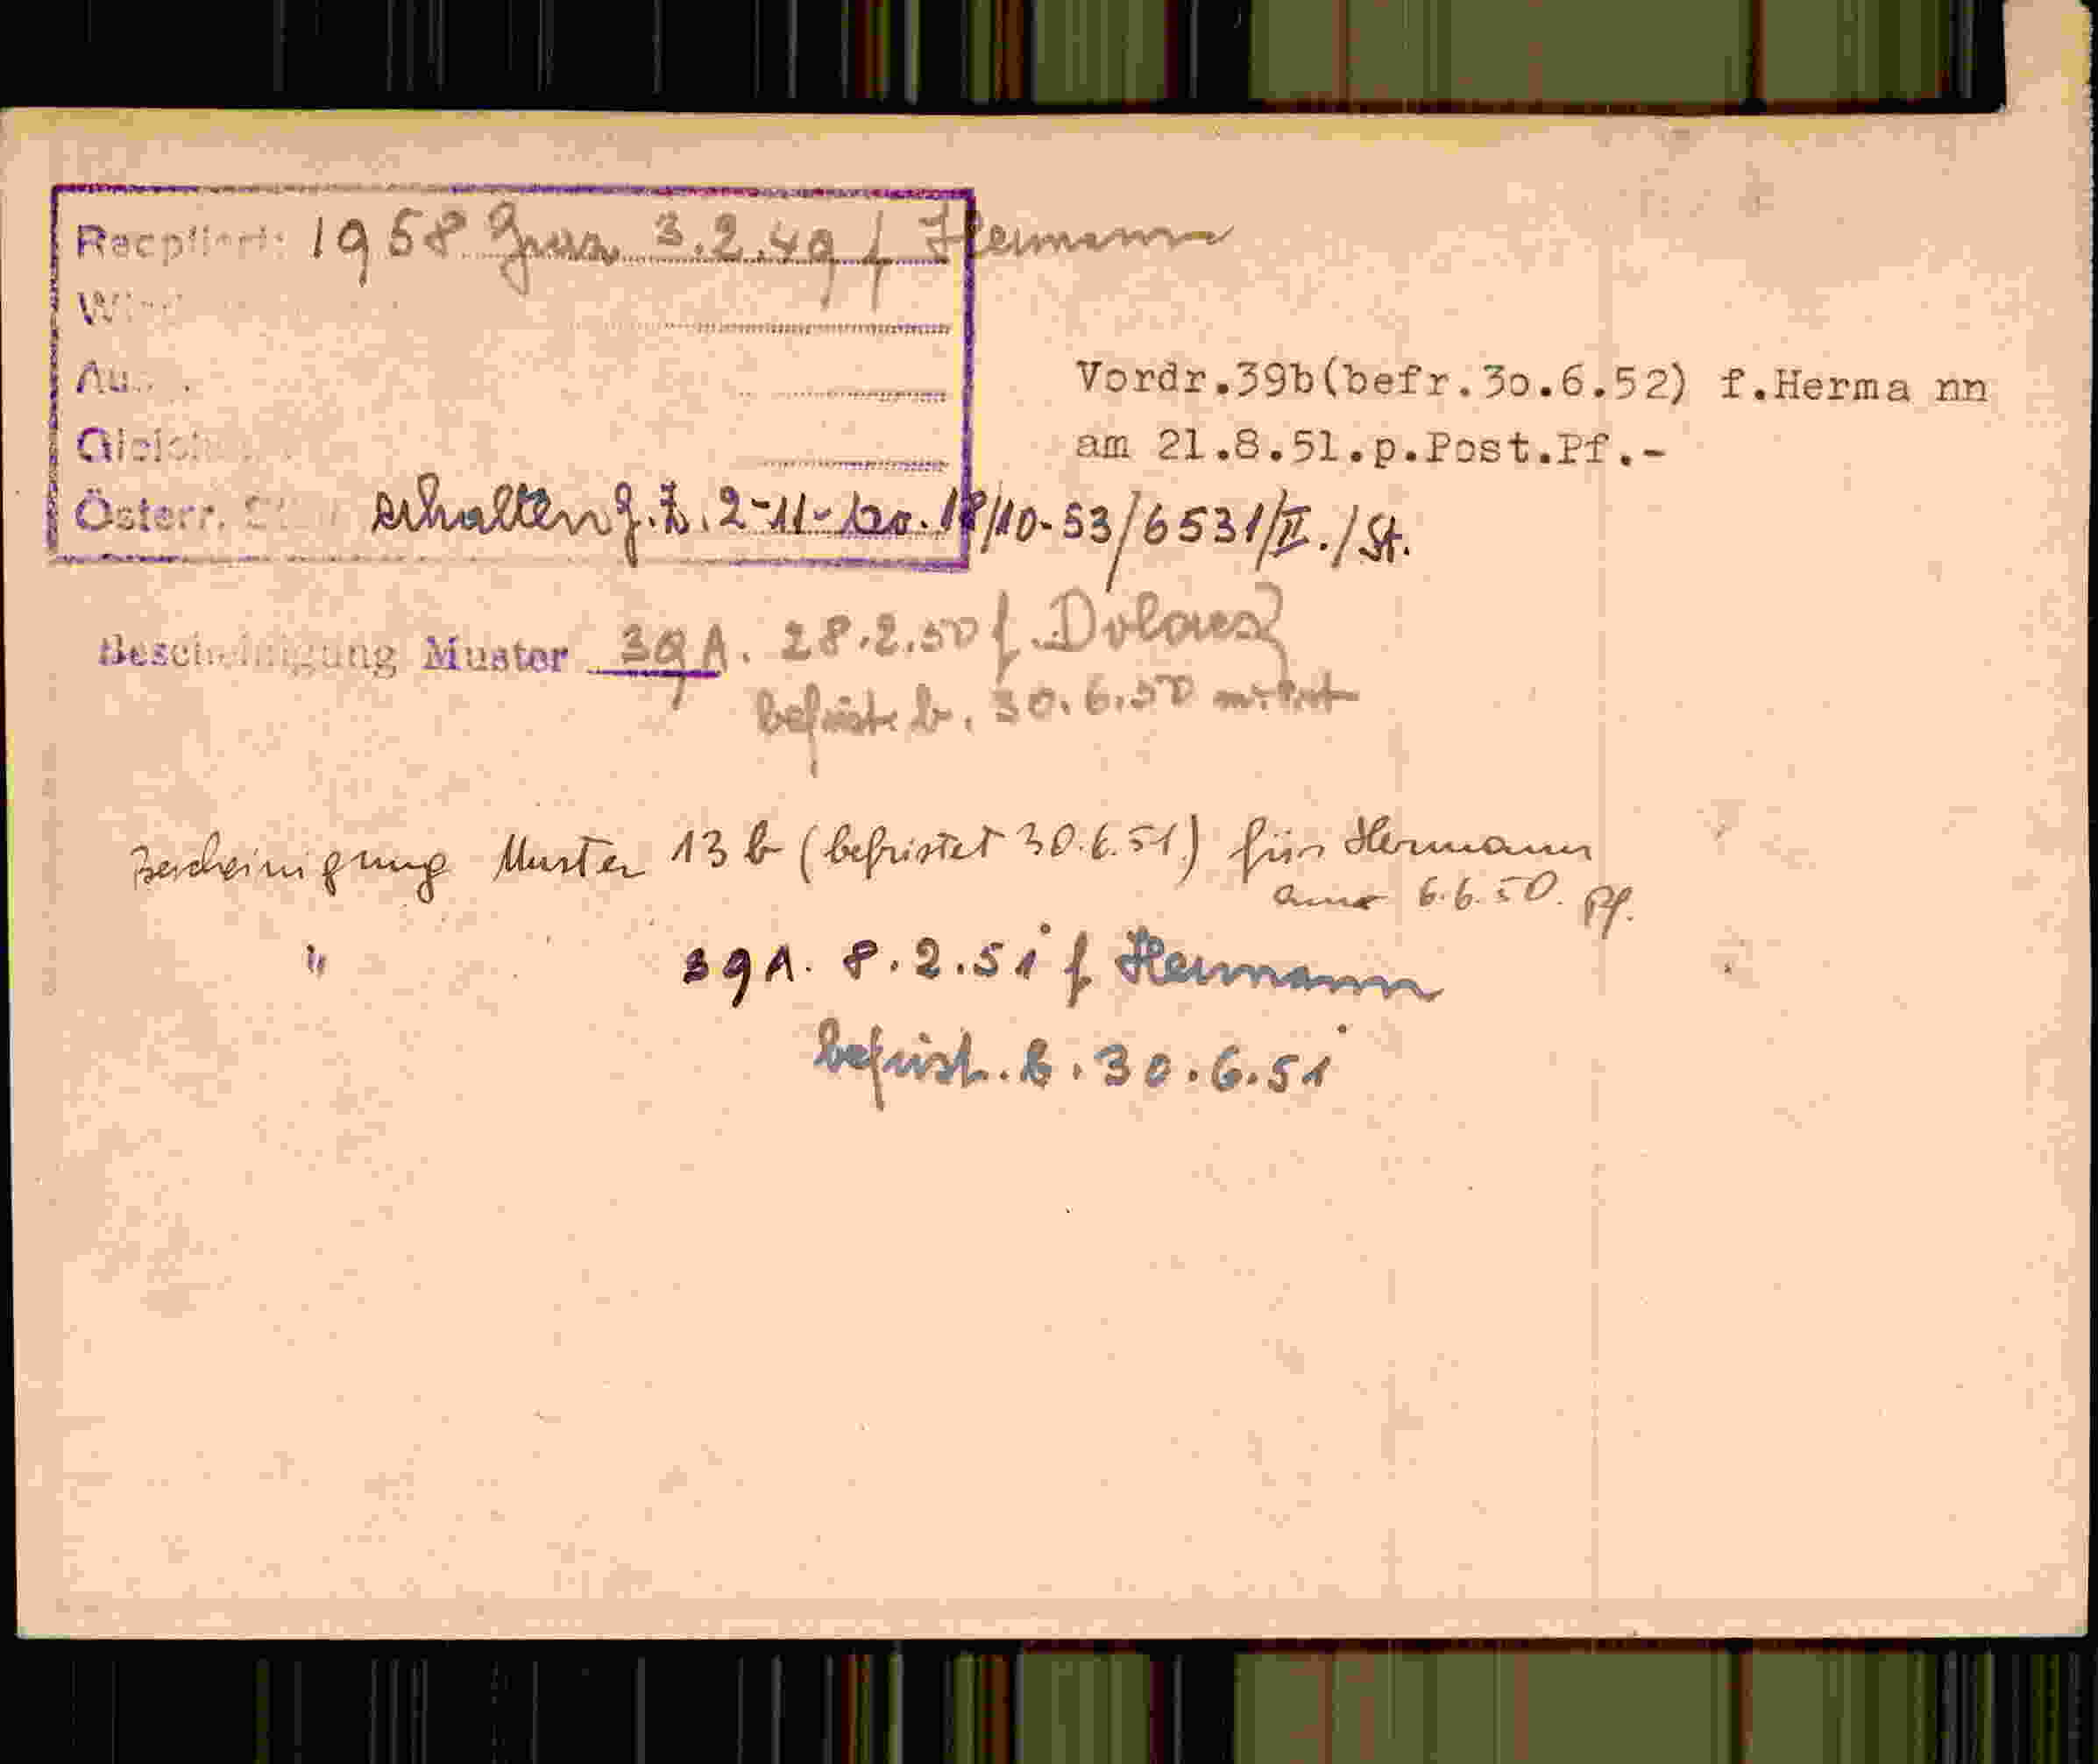 1958 Graz 3.2.49 f Hermann
Vordr.39b(befr.3o.6.52) f.Herma nn
am 21.8.51.p.Post.Pf.-
Österr. erhalten g. Z. 2-11- 18/10-53/6531/II./St.
Bescheinigung Muster 39A. 28.2.50 f. Dolores
befrist. b. 30.6.50
Bescheinigung Muster 13 b (befristet 30.6.51) für Hermann
am 6.6.50. Pf.
" 39A. 8.2.51 f Hermann
befrist. b. 30.6.51